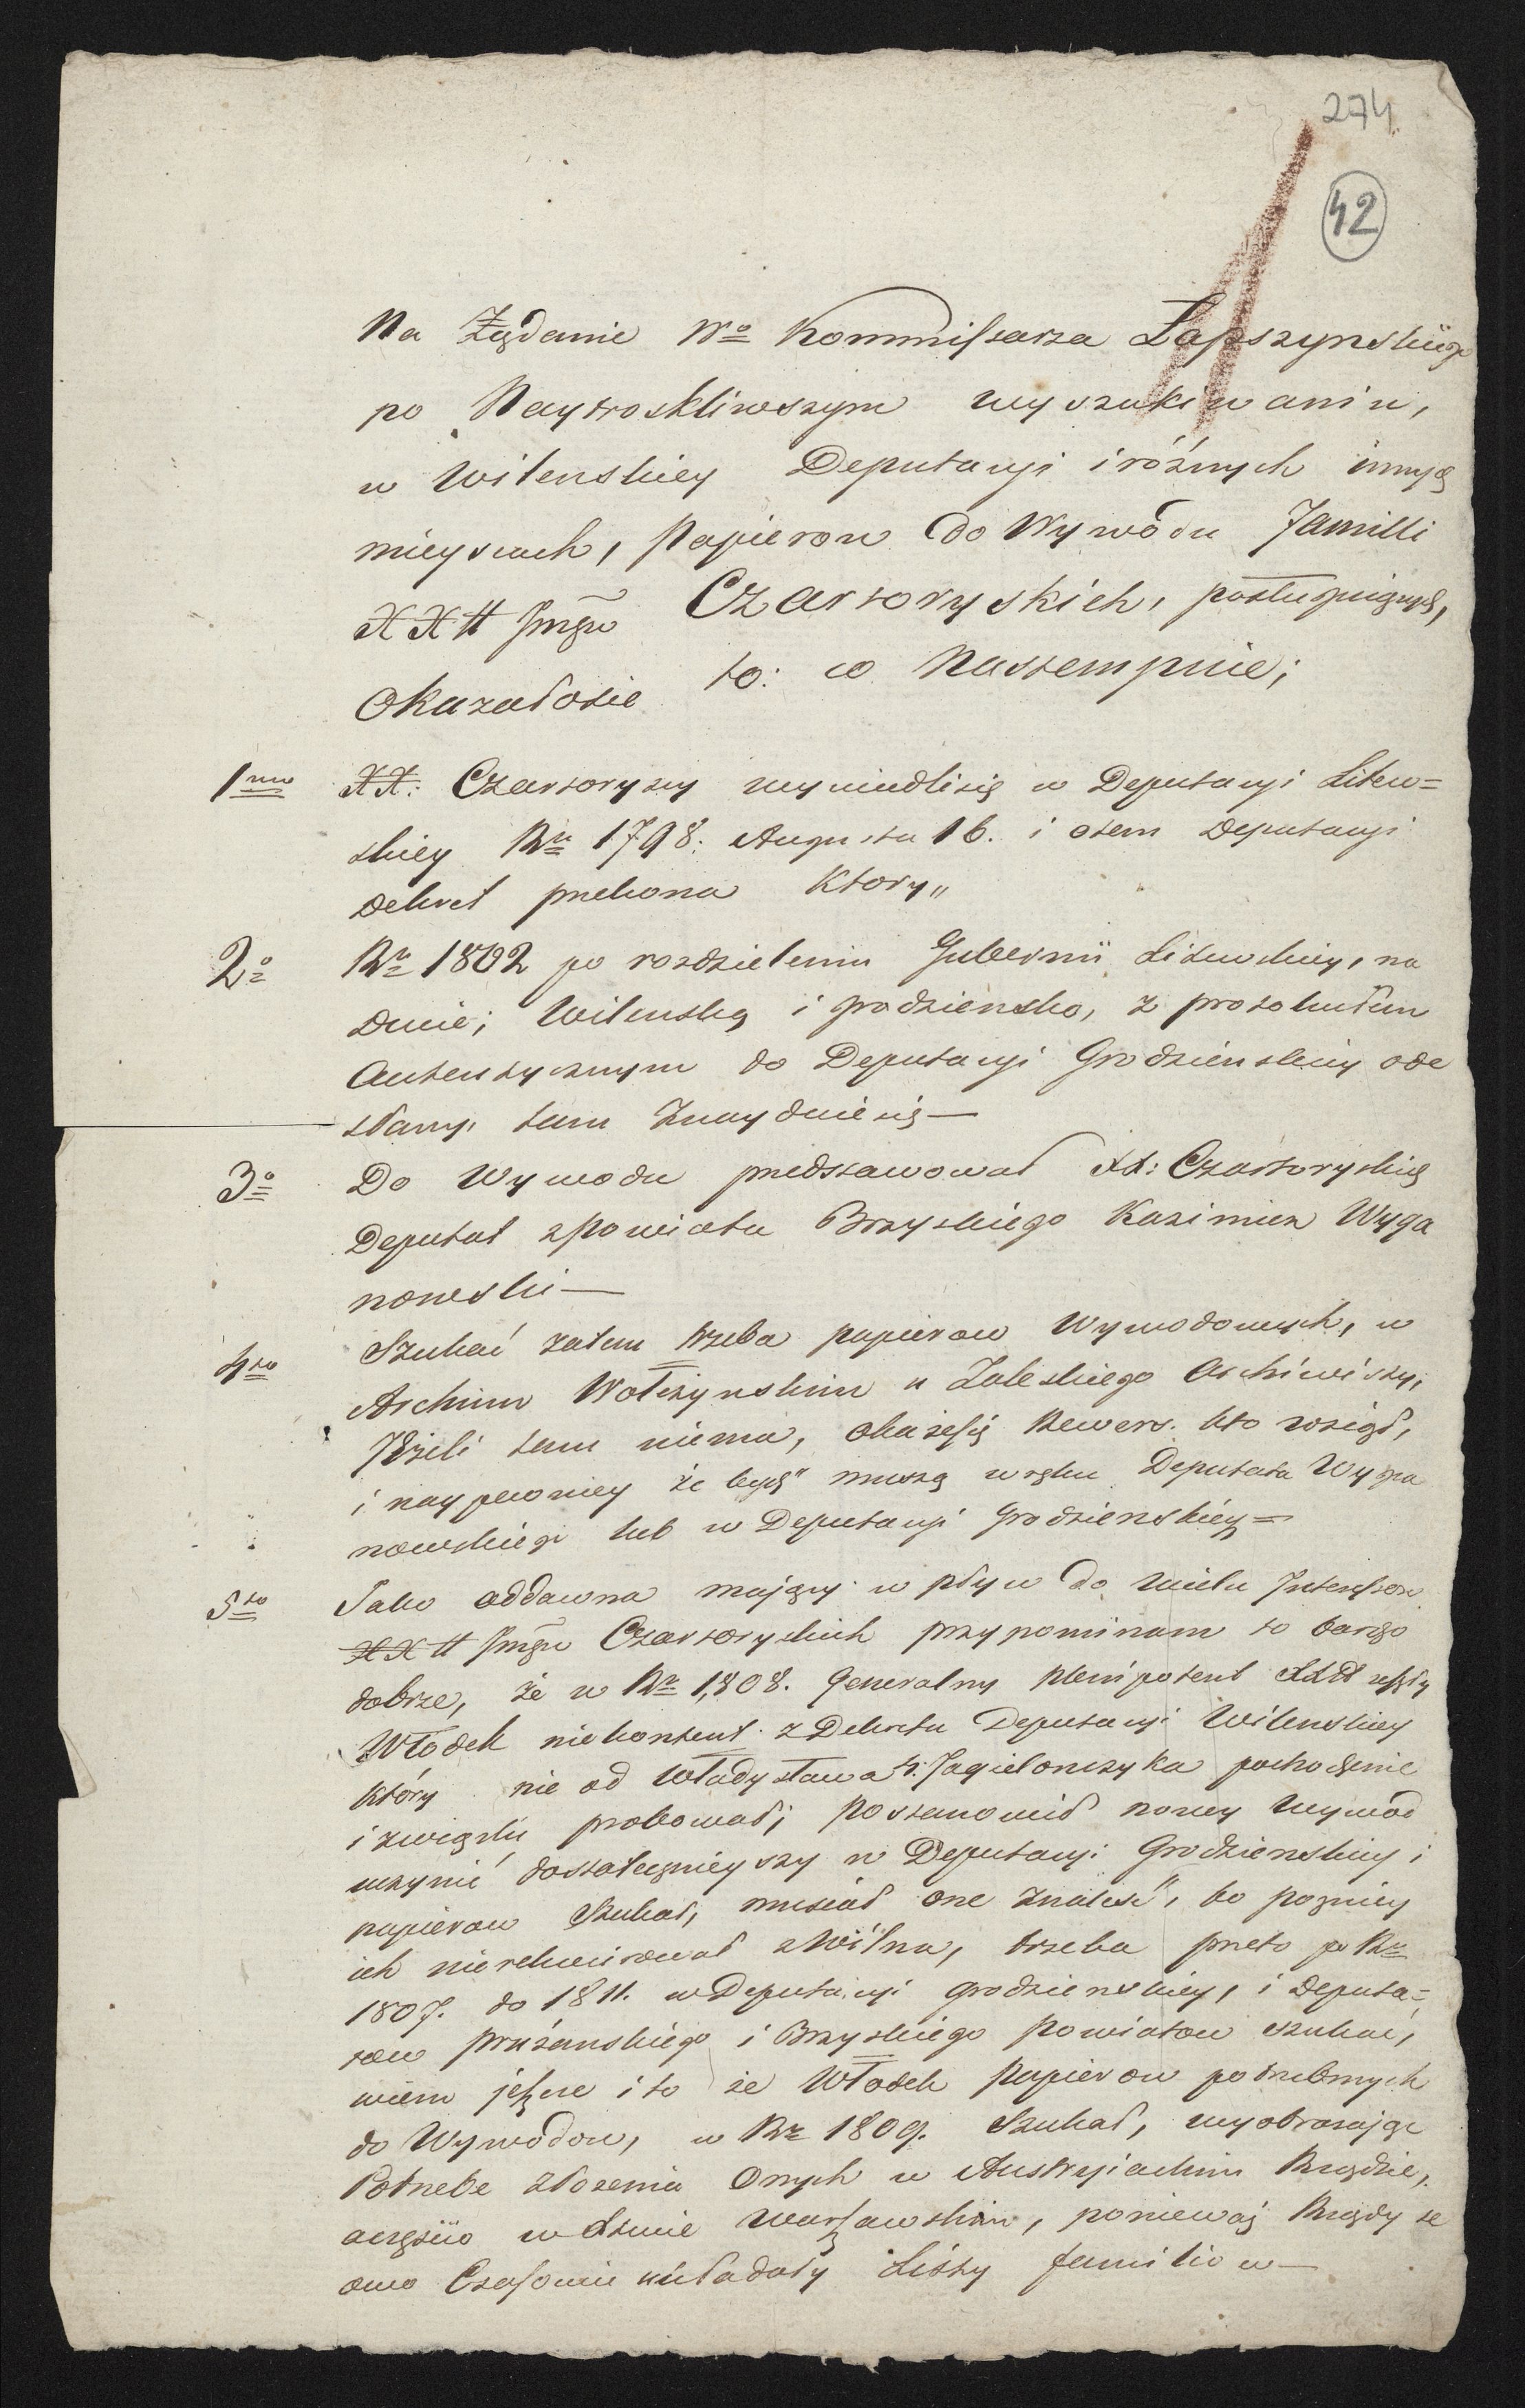 274
42
Na Żądanie Wo Kommissarza Łapszynskiego
po Naytroskliwszym wyszukiwaniu,
w Wilenskiey Deputacyi i różnych innych
mieyscach, Papierow do Wywodu Familli
XX Czartoryskich,
Okazałosie to: co Nastempnie;
1mo XX: Czartoryscy wywiedlisię w Deputacyi Litew=
skiey Ru 1798: Augusta 16. i otem Deputacyi
Dekret przekona Ktory„
2o Ru 1802 po rozdzieleniu Gubernii Litewskiey, na
Dwie; Wilenską i Grodziensko, z protokułem
Autentycznym do Deputacyi Grodzienskiey ode
słany, tam Znayduie się—
3o Do Wywodu przedstawował XX: Czartoryskich
Deputat z Powiatu Brzyskiego Kazimierz Wyga
nowski—
4to Szukać zatem trzeba papierow Wywodowych, w
Archiwu Wołczynskim u Zaleskiego Archiwisty,
Jeżeli tam niema, okażesię Rewers. kto wziął,
i naypewniey że bydź muszą w ręku Deputata Wyga
nowskiego lub w Deputacyi Grodzienskiey=
5to Jako oddawna mający wpływ do wielu Interessow
XX Czartoryskich przypominam to bardzo
dobrze, że w Ru 1,808. Generalny Plenipotent
Włodek niekontent z Dekretu Deputacyi Wilenskiey
który nie od Władysława Jagielonczyka pochodzenie
i związki probował; Postanowił nowy Wywod
uczynić dostatecznieyszy w Deputacyi Grodzienskiey i
papierow Szukał, musiał one Znaleść, bo pozniey
ich nierekwirował z Wilna, trzeba przeto po Ru
1807. do 1811. w Deputacyi Grodzienskiey, i Deputa=
tow Prużanskiego i Brzyskiego Powiatow szukać,
wiem jeszcze i to że Włodek Papierow potrzebnych
do Wywodow, w Ru 1809. Szukał, wyobrażając
Potrzebe złożenia Onych w Austryiackim Rządzie,
w Xtwie Warszawskim, ponieważ Rządy te
owo Czasowie układały Listy familiow—